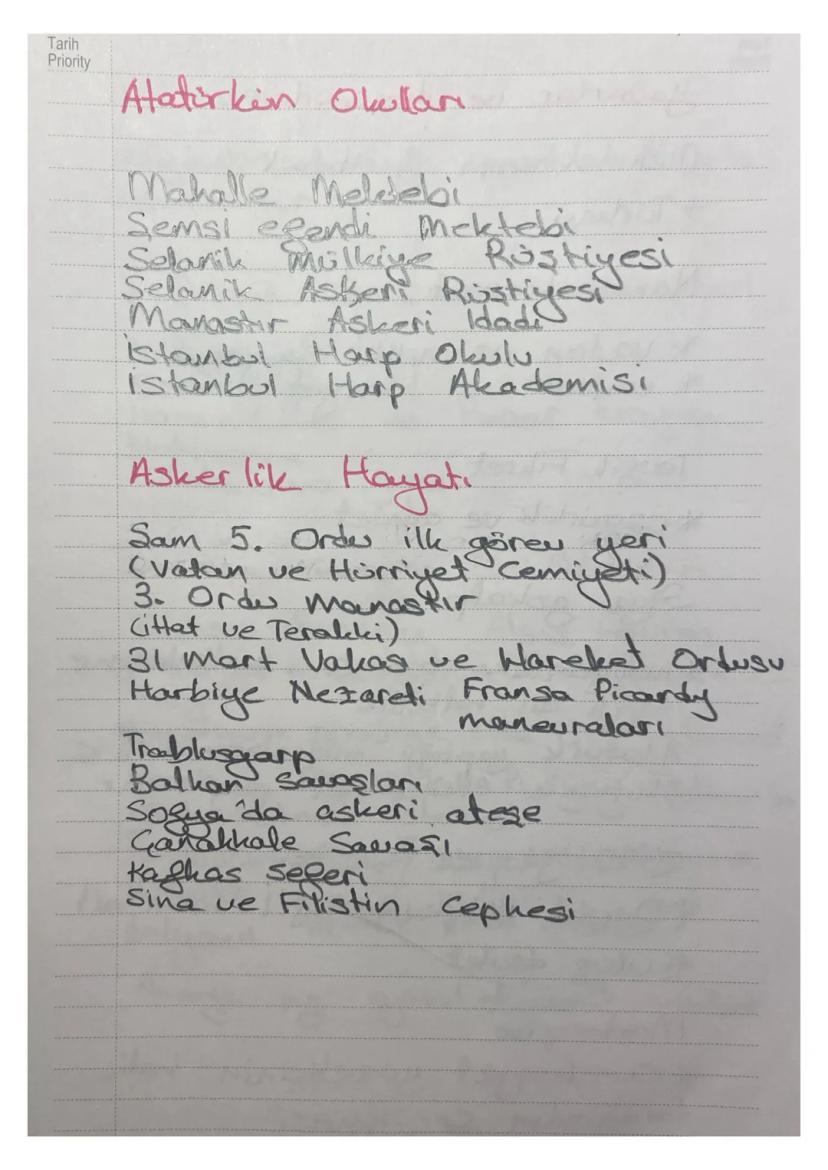 Tarih
Priority
Atatürkün Okulları
Mahalle Mektebi
Şemsi efendi Mektebi
Selanik Mülkiye Rüştiyesi
Selanik Askeri Rüştiyesi
Manastır Askeri İdadi
İstanbul Harp Okulu
İstanbul Harp Akademisi
Askerlik Hayatı
Şam 5. Ordu ilk görev yeri
(Vatan ve Hürriyet Cemiyeti)
3. Ordu Manastır
(ittat ve Terakki)
31 Mart Vakası ve Hareket Ordusu
Harbiye Nezareti Fransa Picardy
manevraları
Trablusgarp
Balkan savaşları
Sofya'da askeri ateşe
Çanakkale Savaşı
Kafkas seferi
Sina ve Filistin Cephesi